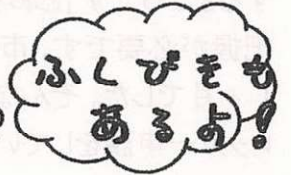 ふくびきも
あるよ!